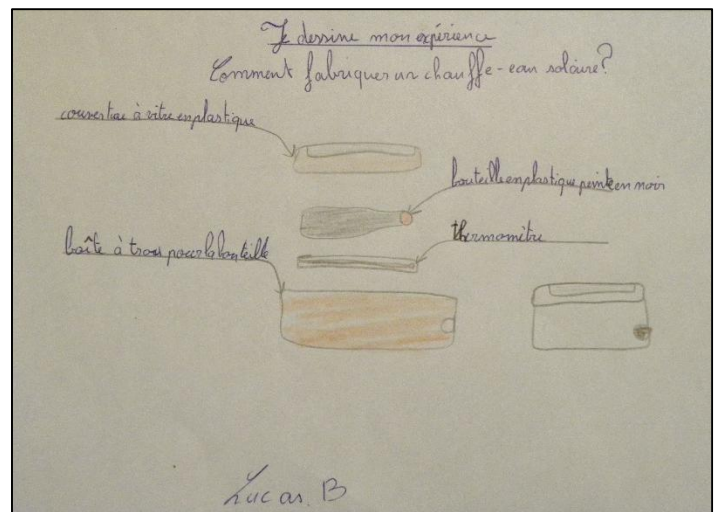 Je dessine mon expérience
Comment fabriquer un chauffe-eau solaire?
couvercle à vitre en plastique
bouteille en plastique peinte en noir
thermomètre
boîte à trou pour la bouteille
Lucas. B